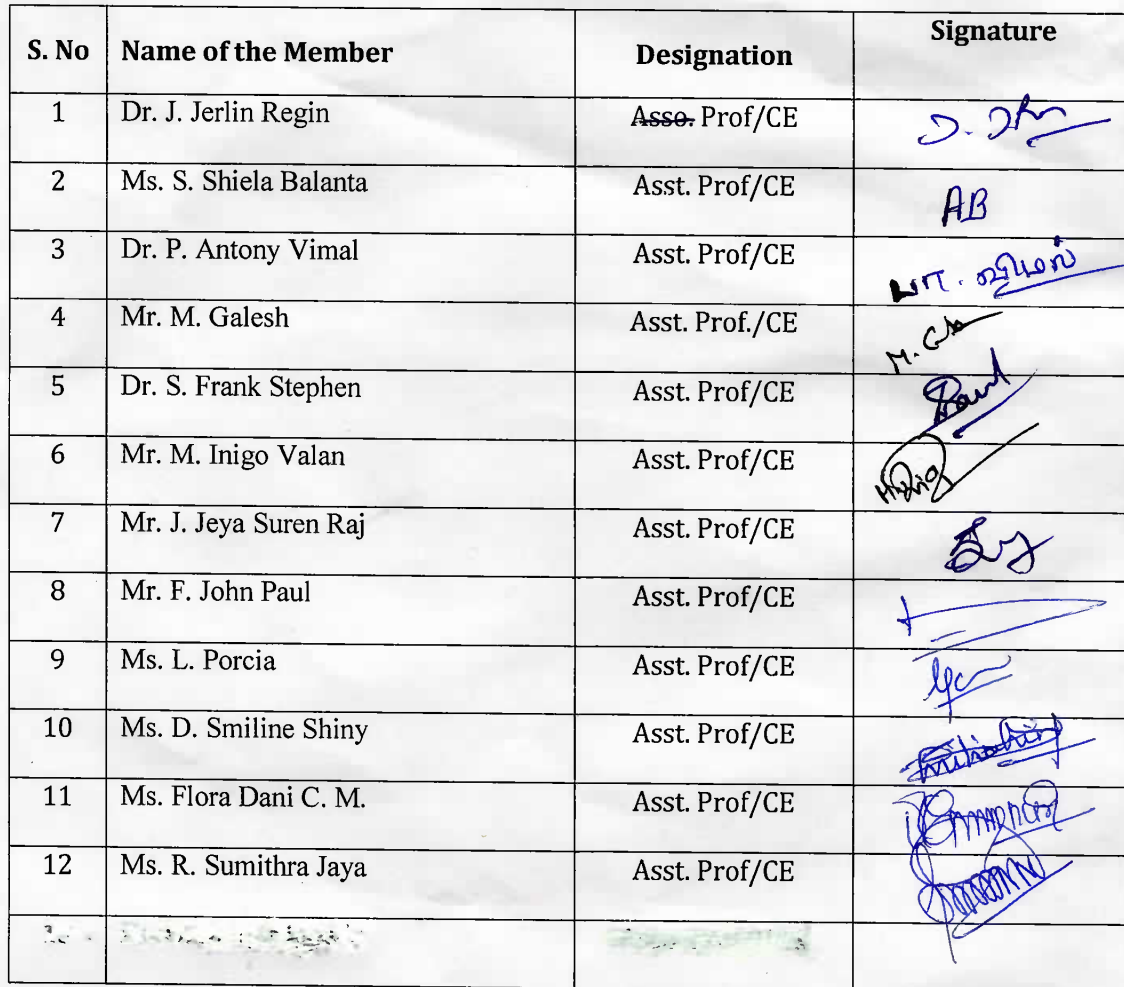 S. No Name of the Member Designation Signature
1 Dr. J. Jerlin Regin Asso. Prof/CE
2 Ms. S. Shiela Balanta Asst. Prof/CE AB
3 Dr. P. Antony Vimal Asst. Prof/CE
4 Mr. M. Galesh Asst. Prof./CE
5 Dr. S. Frank Stephen Asst. Prof/CE
6 Mr. M. Inigo Valan Asst. Prof/CE
7 Mr. J. Jeya Suren Raj Asst. Prof/CE
8 Mr. F. John Paul Asst. Prof/CE
9 Ms. L. Porcia Asst. Prof/CE
10 Ms. D. Smiline Shiny Asst. Prof/CE
11 Ms. Flora Dani C. M. Asst. Prof/CE
12 Ms. R. Sumithra Jaya Asst. Prof/CE